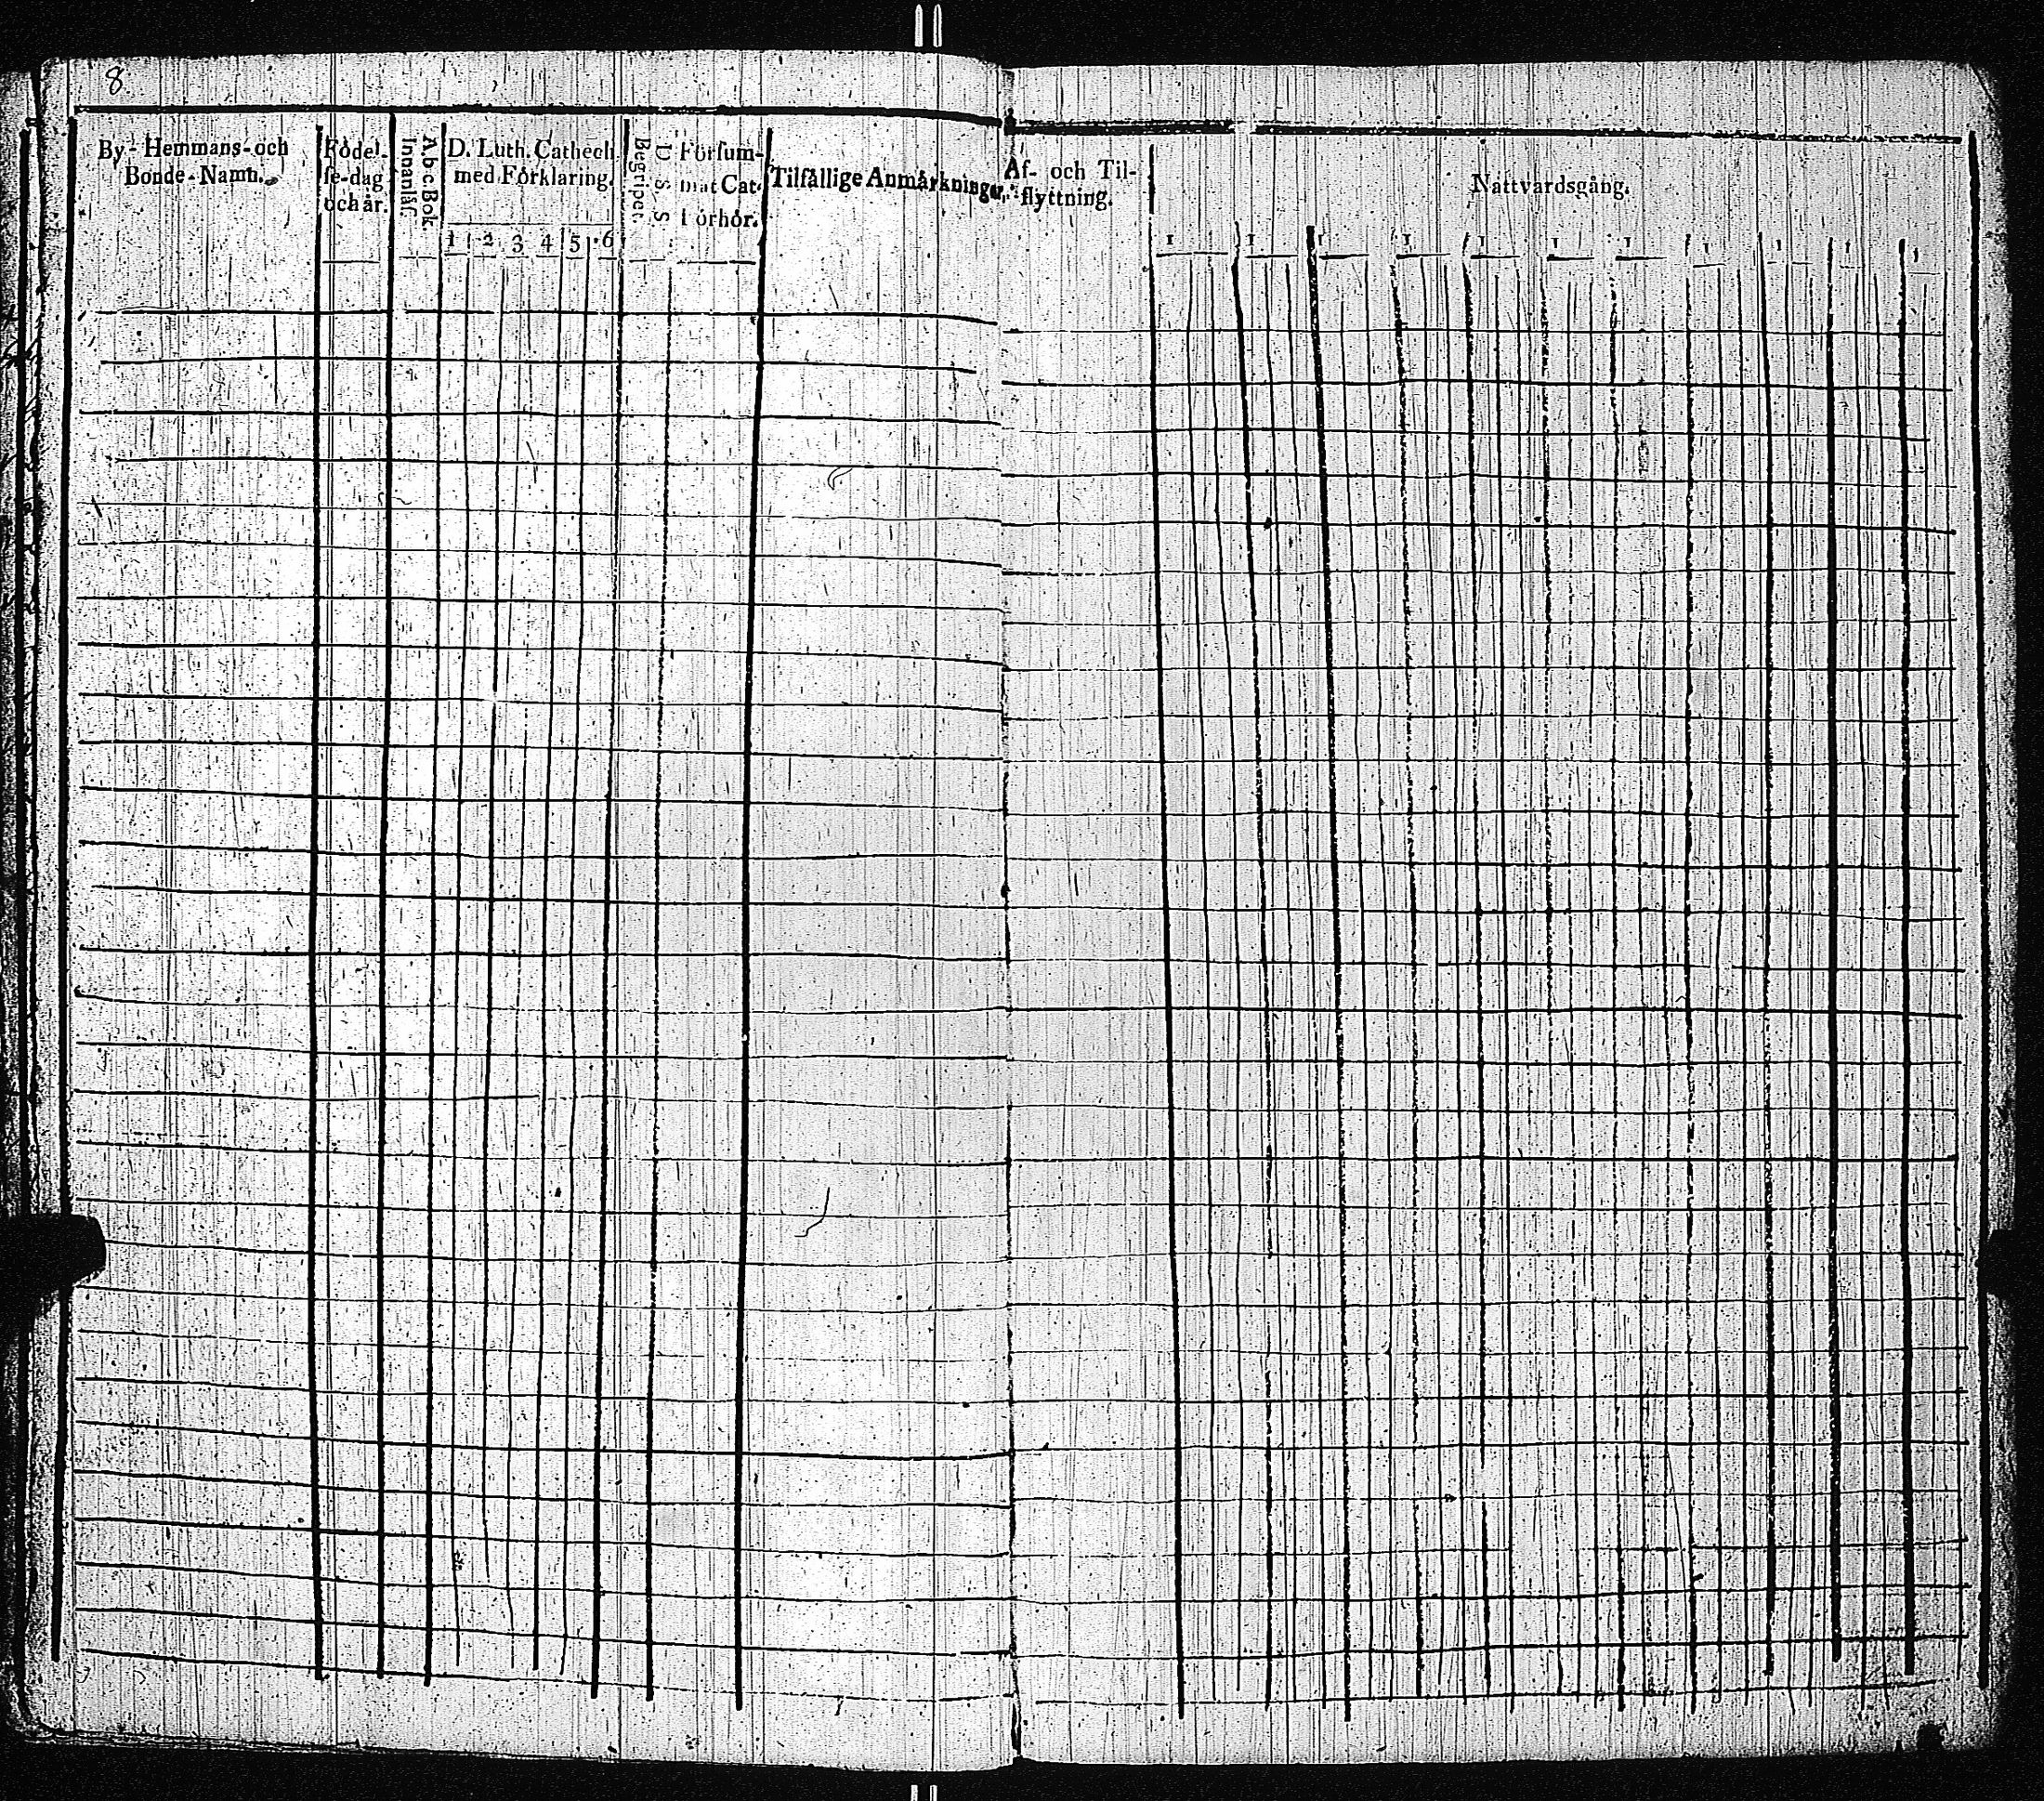 8
By - Hemmans - och
Bonde - Namn.
Födel-
se-dag
och år.
A b c Bok.
Innanläs.
D. Luth. Cathech
med Förklaring.
1 2 3 4 5 6
Begripet.
D. S. S
Försum-
mat Cat.
Förhör.
Tilfällige Anmärkningar.
Af- och Til-
flyttning.
Nattvardsgång.
1 1 1 1 1 1 1 1 1 1 1